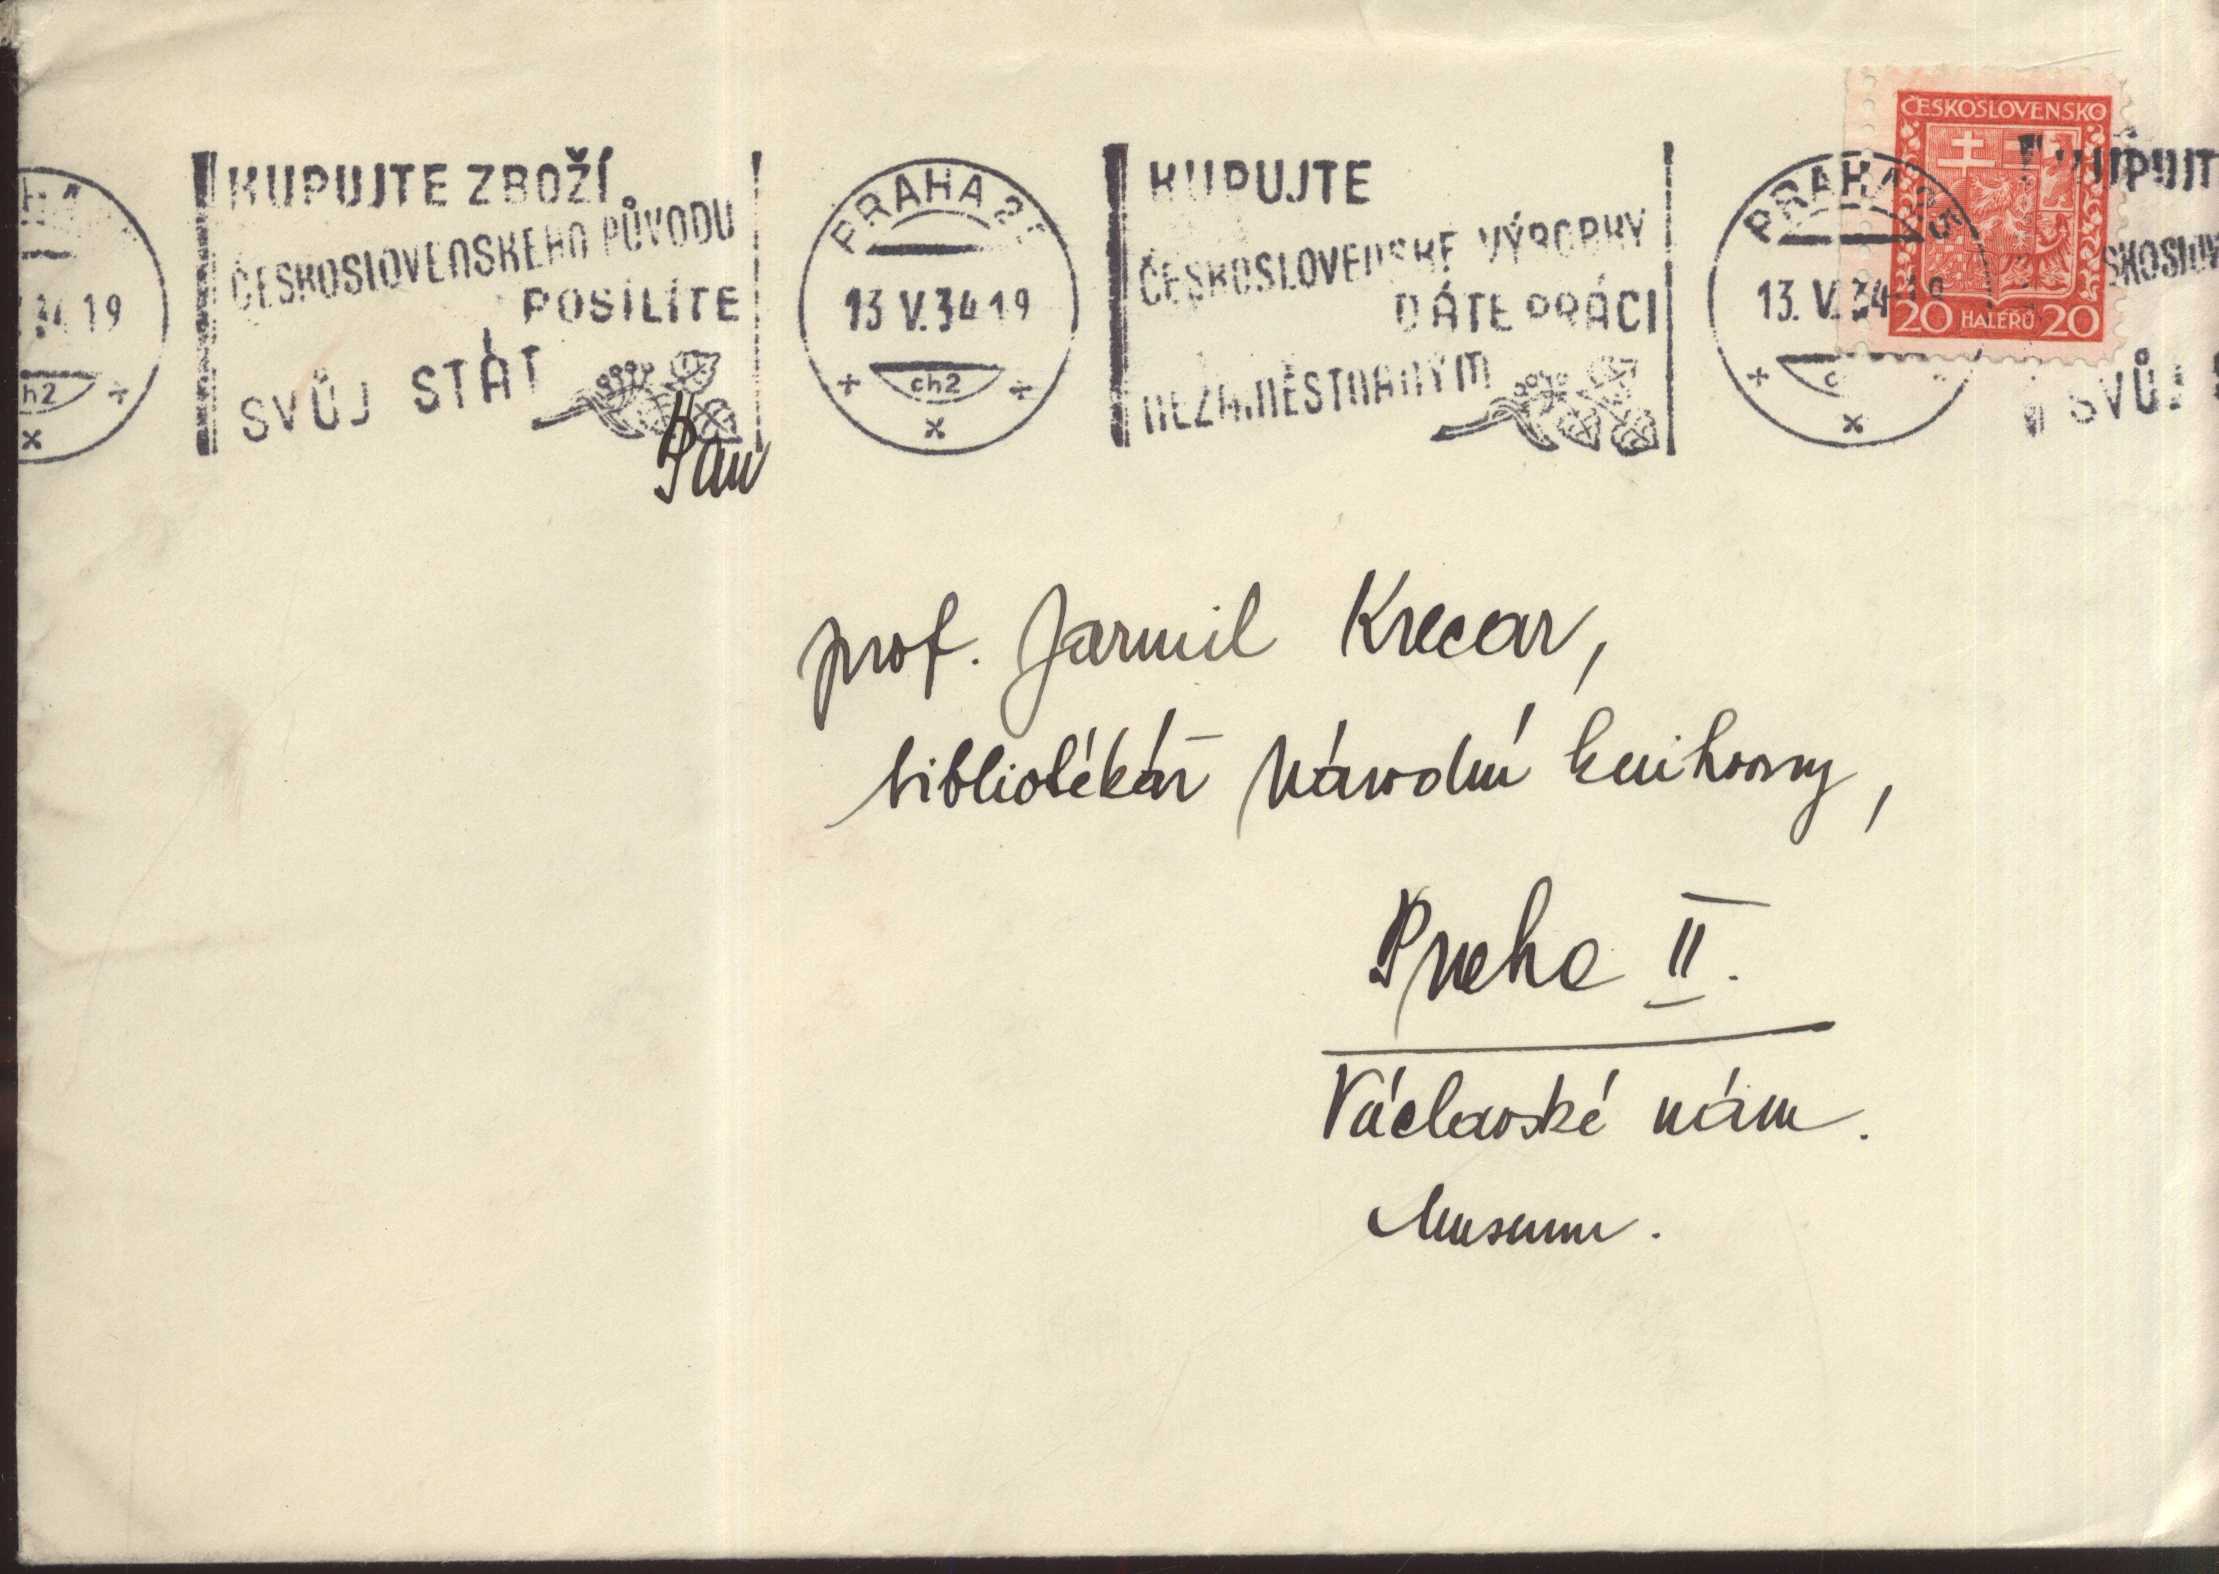 KUPUJTE ZBOŽÍ
ČESKOSLOVENSKÉHO PŮVODU
POSÍLÍTE
SVŮJ STÁT
PRAHA 25
13.V.34-19
ch2
KUPUJTE
ČESKOSLOVENSKÉ VÝROBKY
DÁTE PRÁCI
NEZAMĚSTNANÝM
PRAHA 25
13.V.34-19
ČESKOSLOVENSKO
20 HALÉŘŮ 20
34 19
h2
KUPUJT
SKOSLOV
SVŮJ
Pan
prof. Jarmil Krecar,
bibliotékář Národní knihovny,
Praha II.
Václavské nám.
Museum.